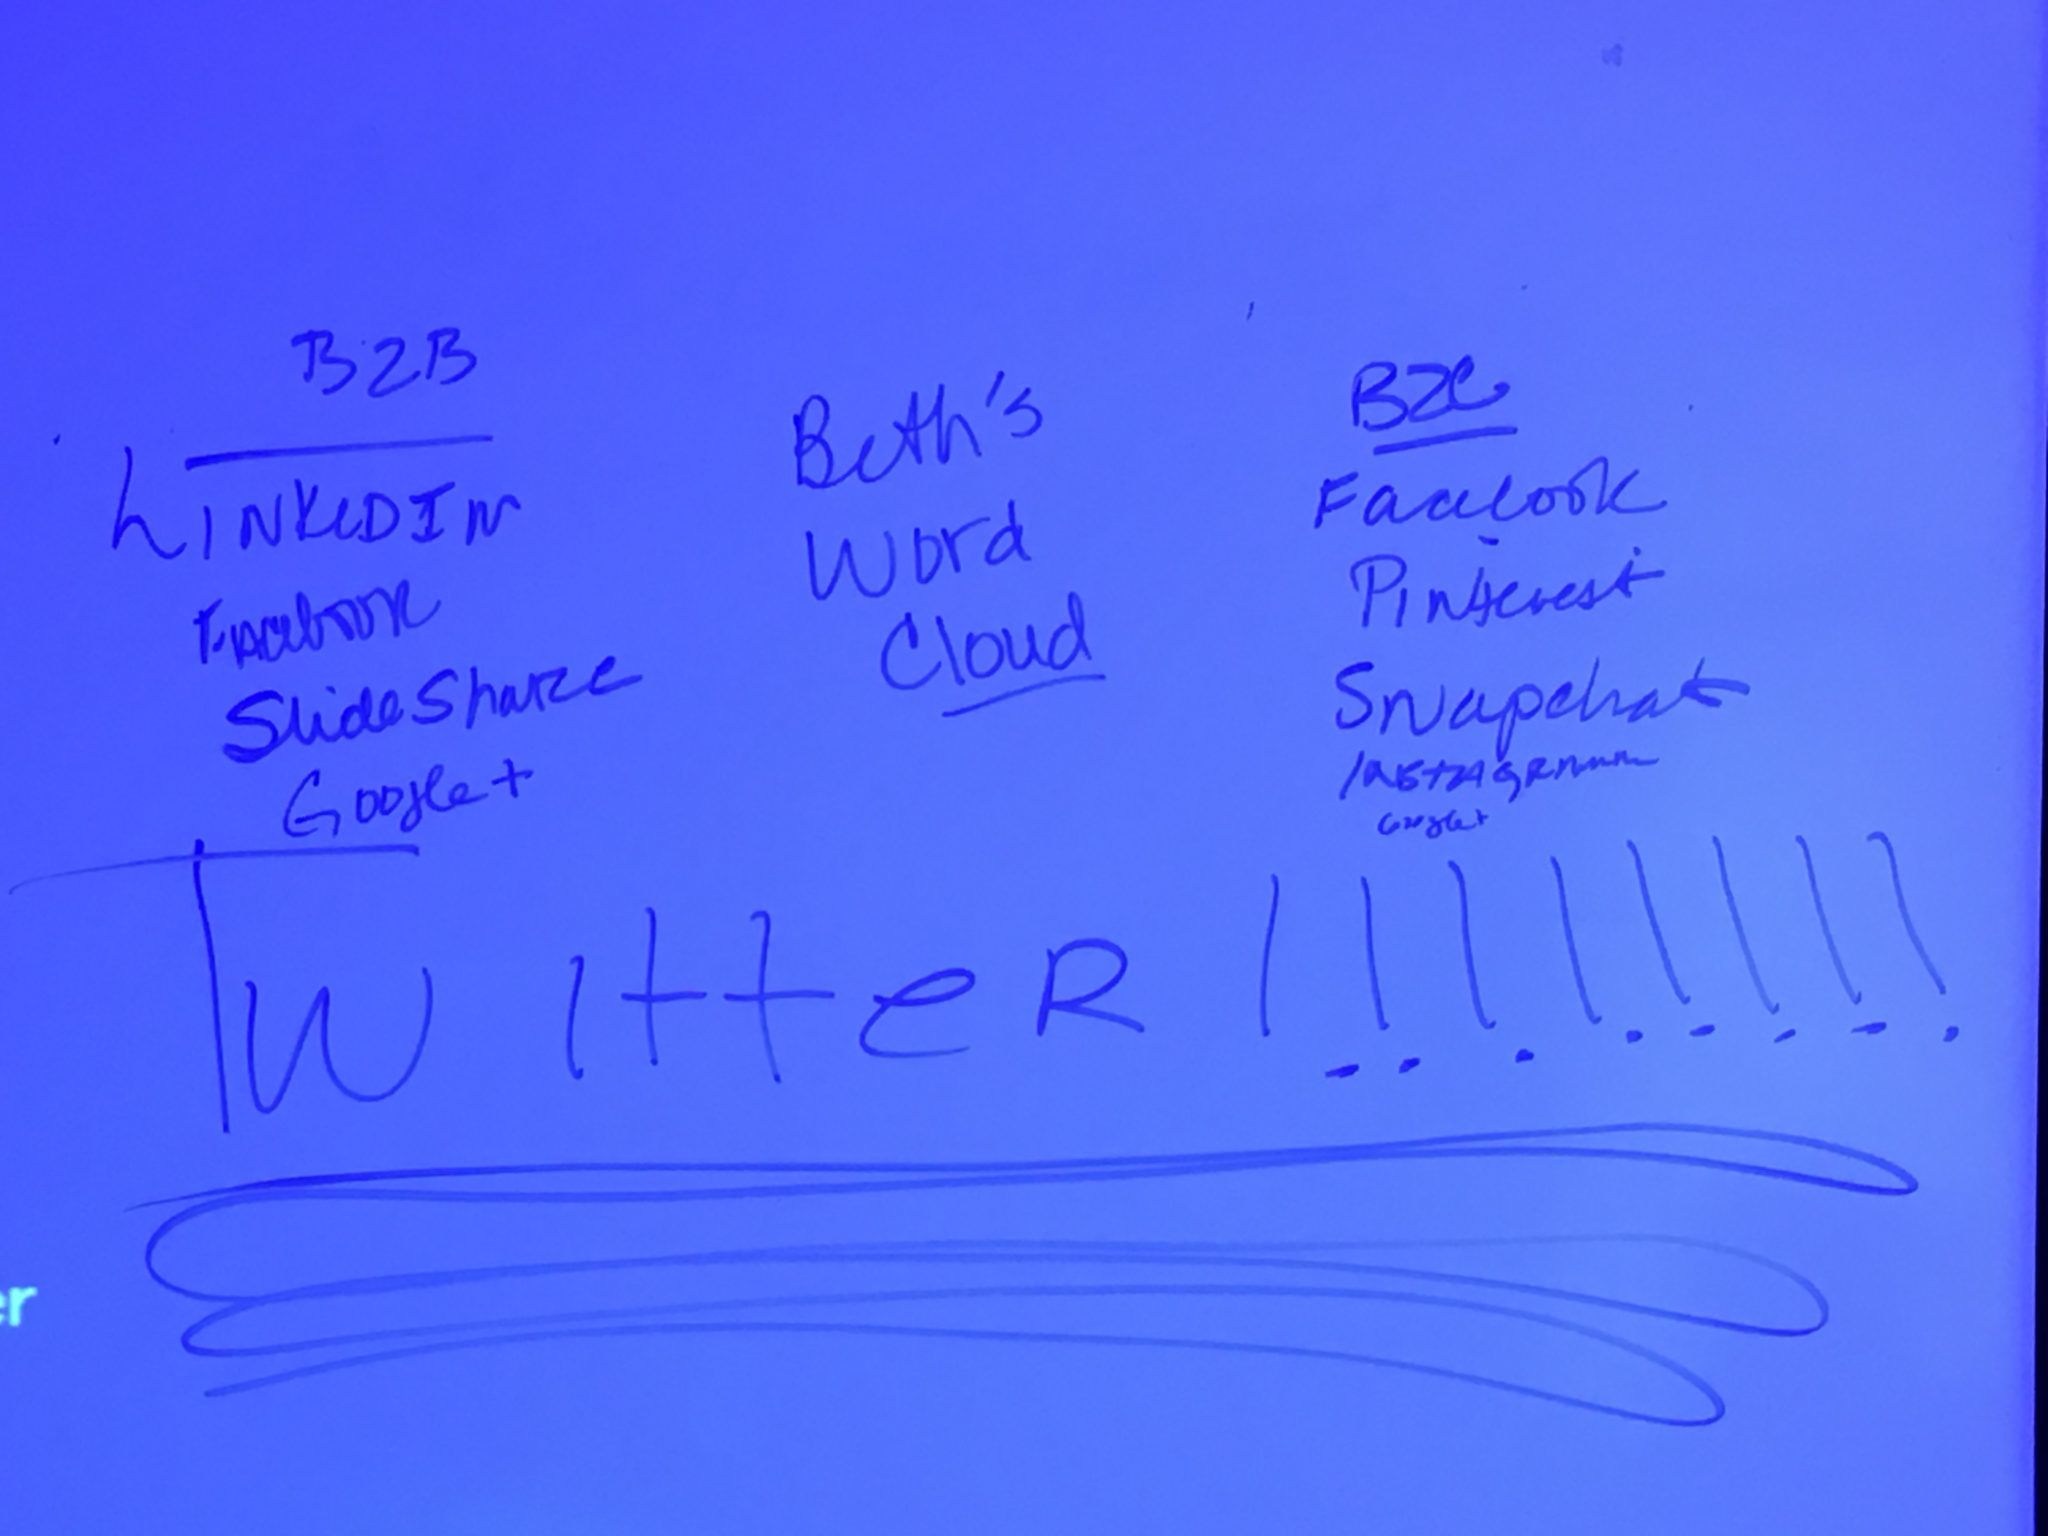 B2B
LINKEDIN
Facebook
SlideShare
Google+
Beth's
Word
Cloud
B2C
Facebook
Pinterest
Snapchat
Instagram
Google+
TwitteR !!!!!!!!
er